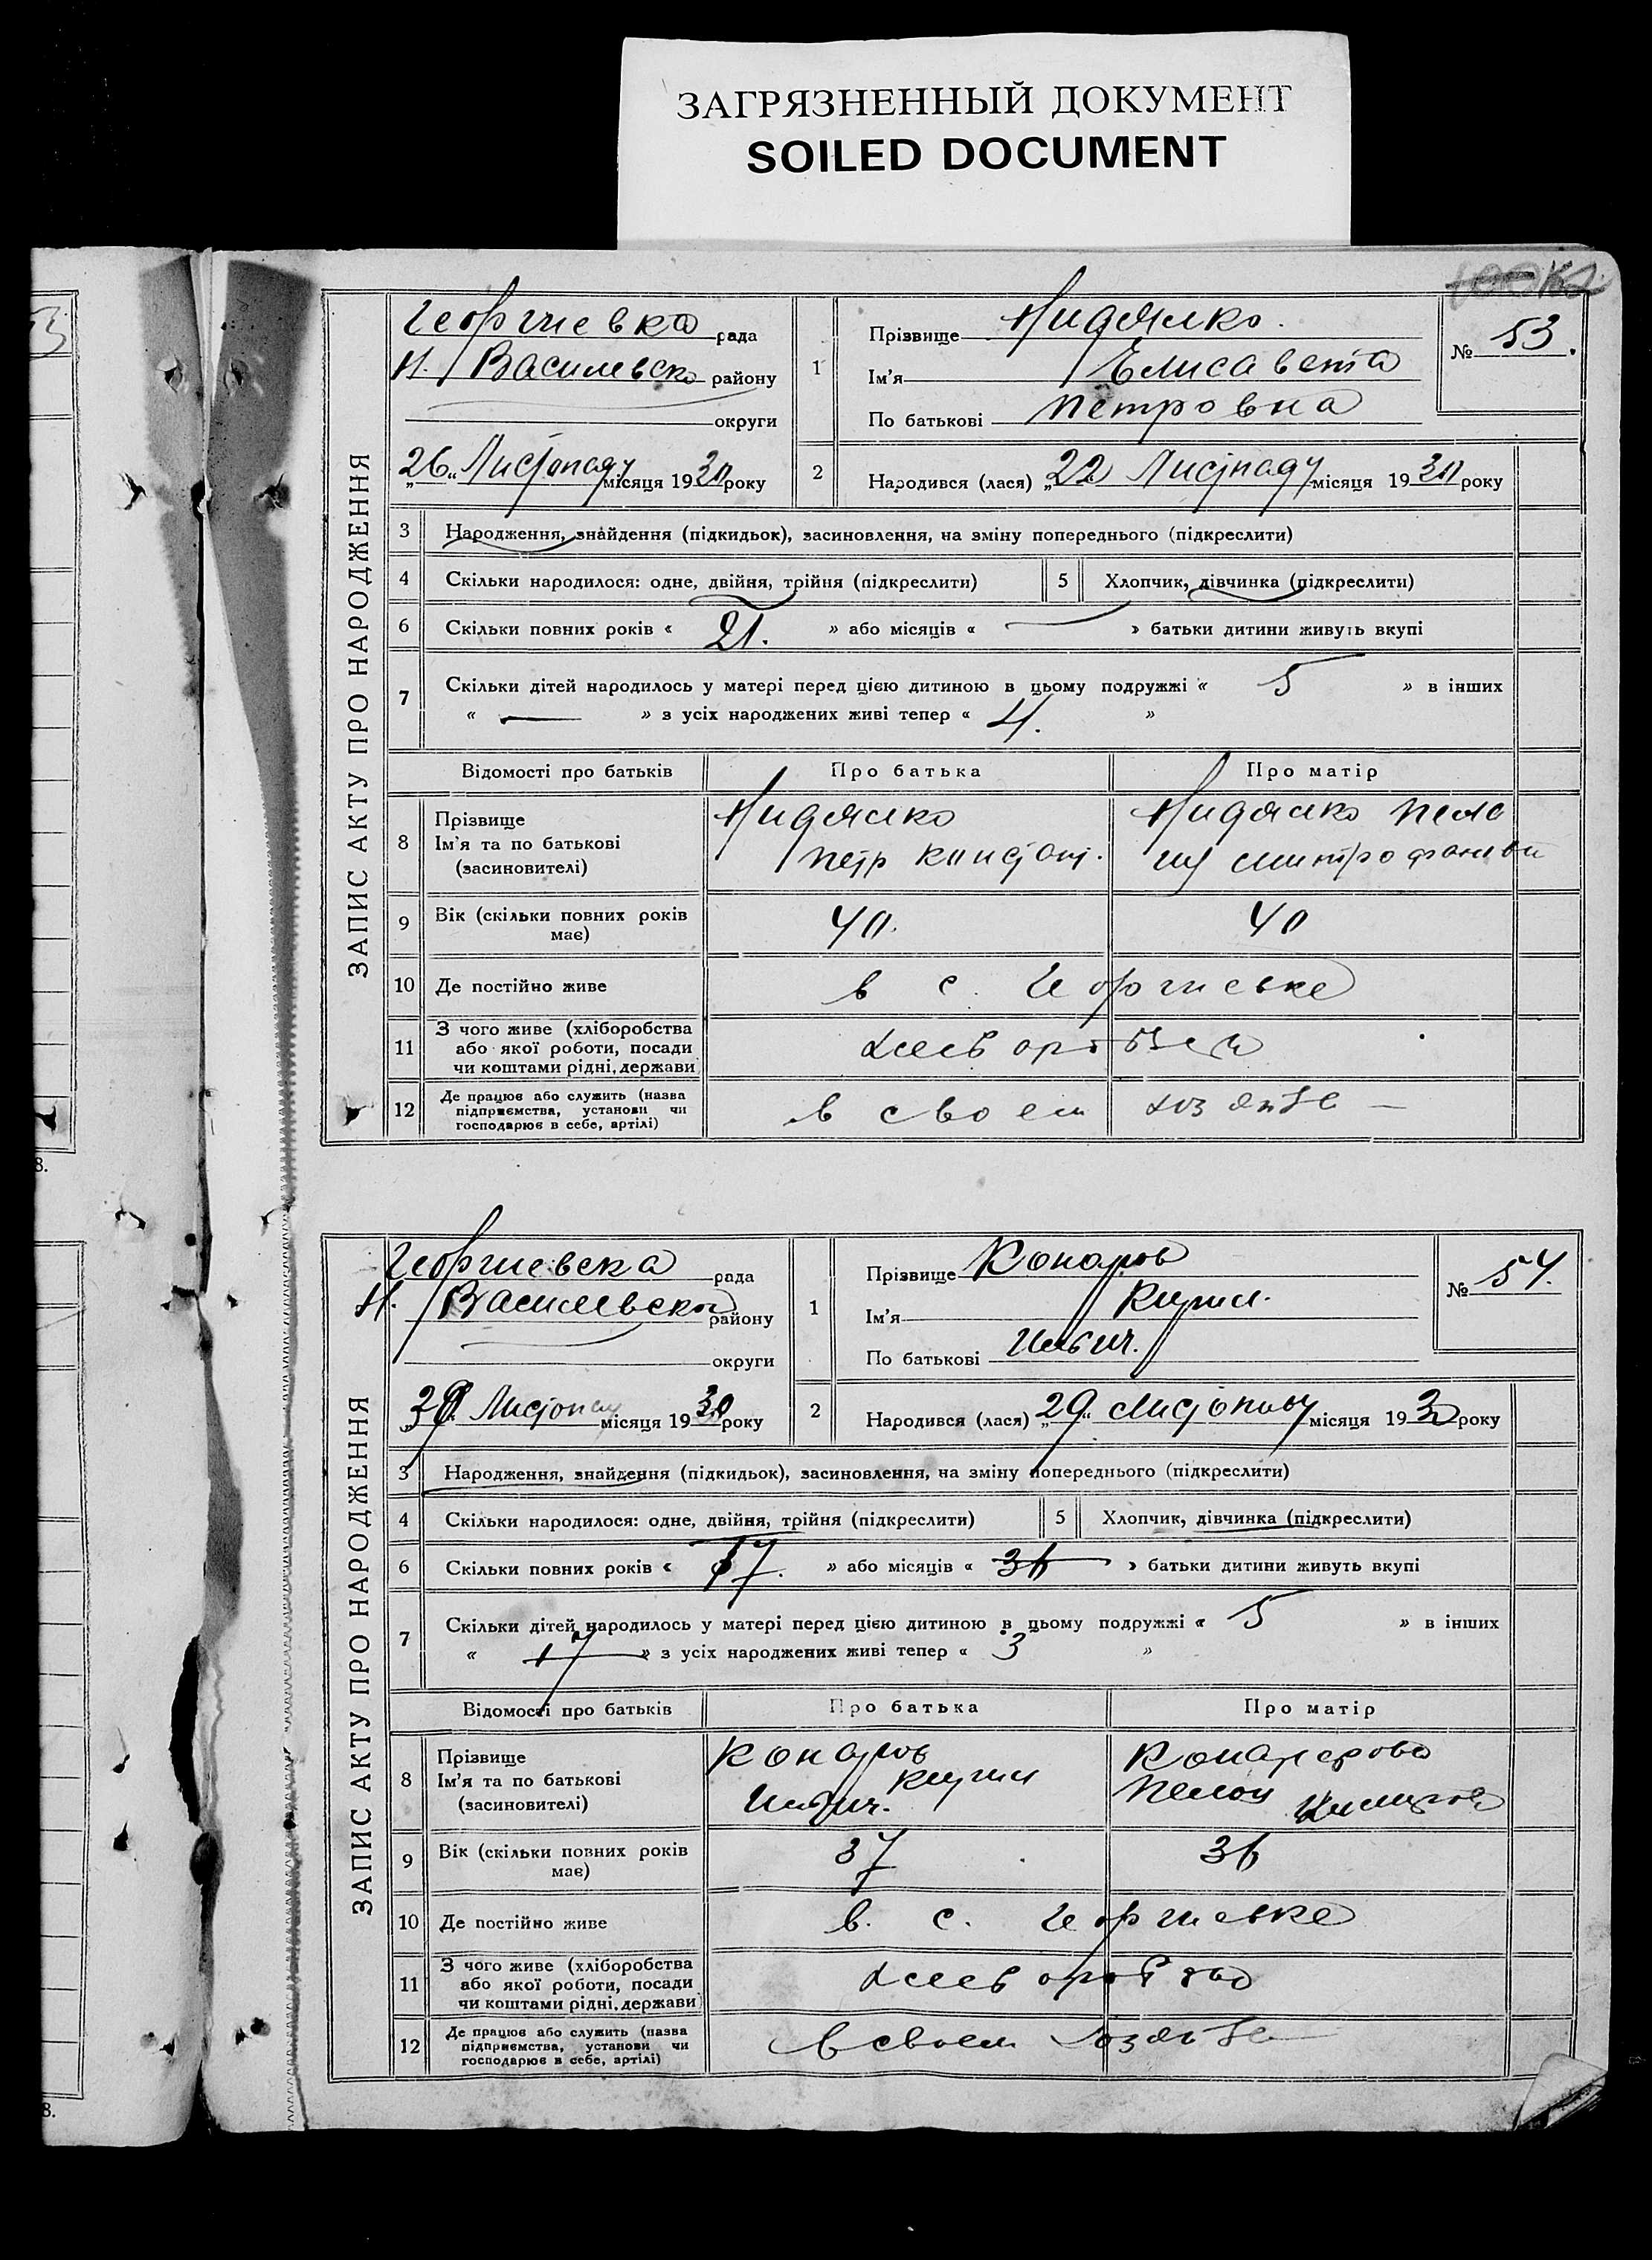 ЗАГРЯЗНЕННЫЙ ДОКУМЕНТ
SOILED DOCUMENT
ЗАПИС АКТУ ПРО НАРОДЖЕННЯ
Георгиевка рада
Н. Василевско району
округи
„26“ Листопаду місяця 1930 року
1 Прізвище Нидялко.
Ім'я Елисавета
По батькові Петровна
№ 53.
2 Народився (лася) „22 Листпаду місяця 1930 року
3 Народження, знайдення (підкидьок), засиновлення, на зміну попереднього (підкреслити)
4 Скільки народилося: одне, двійня, трійня (підкреслити)
5 Хлопчик, дівчинка (підкреслити)
6 Скільки повних років « 21. » або місяців « — » батьки дитини живуть вкупі
7 Скільки дітей народилось у матері перед цією дитиною в цьому подружжі « 5 » в інших
« — » з усіх народжених живі тепер « 4. »
Відомості про батьків Про батька Про матір
8 Прізвище
Ім'я та по батькові
(засиновителі)
Нидялко
Петр Констант.
Нидялко Пела
гия Митрофанов
9 Вік (скільки повних років
має)
40. 40
10 Де постійно живе в с. Георгиевке
11 З чого живе (хліборобства
або якої роботи, посади
чи коштами рідні, держави
12 Де працює або служить (назва
підприємства, установи чи
господарює в себе, артілі)
в своем хозяйве —
ЗАПИС АКТУ ПРО НАРОДЖЕННЯ
Георгиевска рада
Н. Василевской району
округи
Листопад місяця 1930 року
1 Прізвище Конаров
Ім'я Кирил.
По батькові Ильич.
№ 54.
2 Народився (лася) „29“ Листопаду місяця 1930 року
3 Народження, знайдення (підкидьок), засиновлення, на зміну попереднього (підкреслити)
4 Скільки народилося: одне, двійня, трійня (підкреслити)
5 Хлопчик, дівчинка (підкреслити)
6 Скільки повних років « 17. » або місяців « 36 » батьки дитини живуть вкупі
7 Скільки дітей народилось у матері перед цією дитиною в цьому подружжі « 5 » в інших
« 17 » з усіх народжених живі тепер « 3 »
Відомості про батьків Про батька Про матір
8 Прізвище
Ім'я та по батькові
(засиновителі)
Конаров
Кирил
Ильич.
9 Вік (скільки повних років
має)
37 36
10 Де постійно живе в. с. Георгиевке
11 З чого живе (хліборобства
або якої роботи, посади
чи коштами рідні, держави)
12 Де працює або служить (назва
підприємства, установи чи
господарює в себе, артілі)
в своем хозяйве